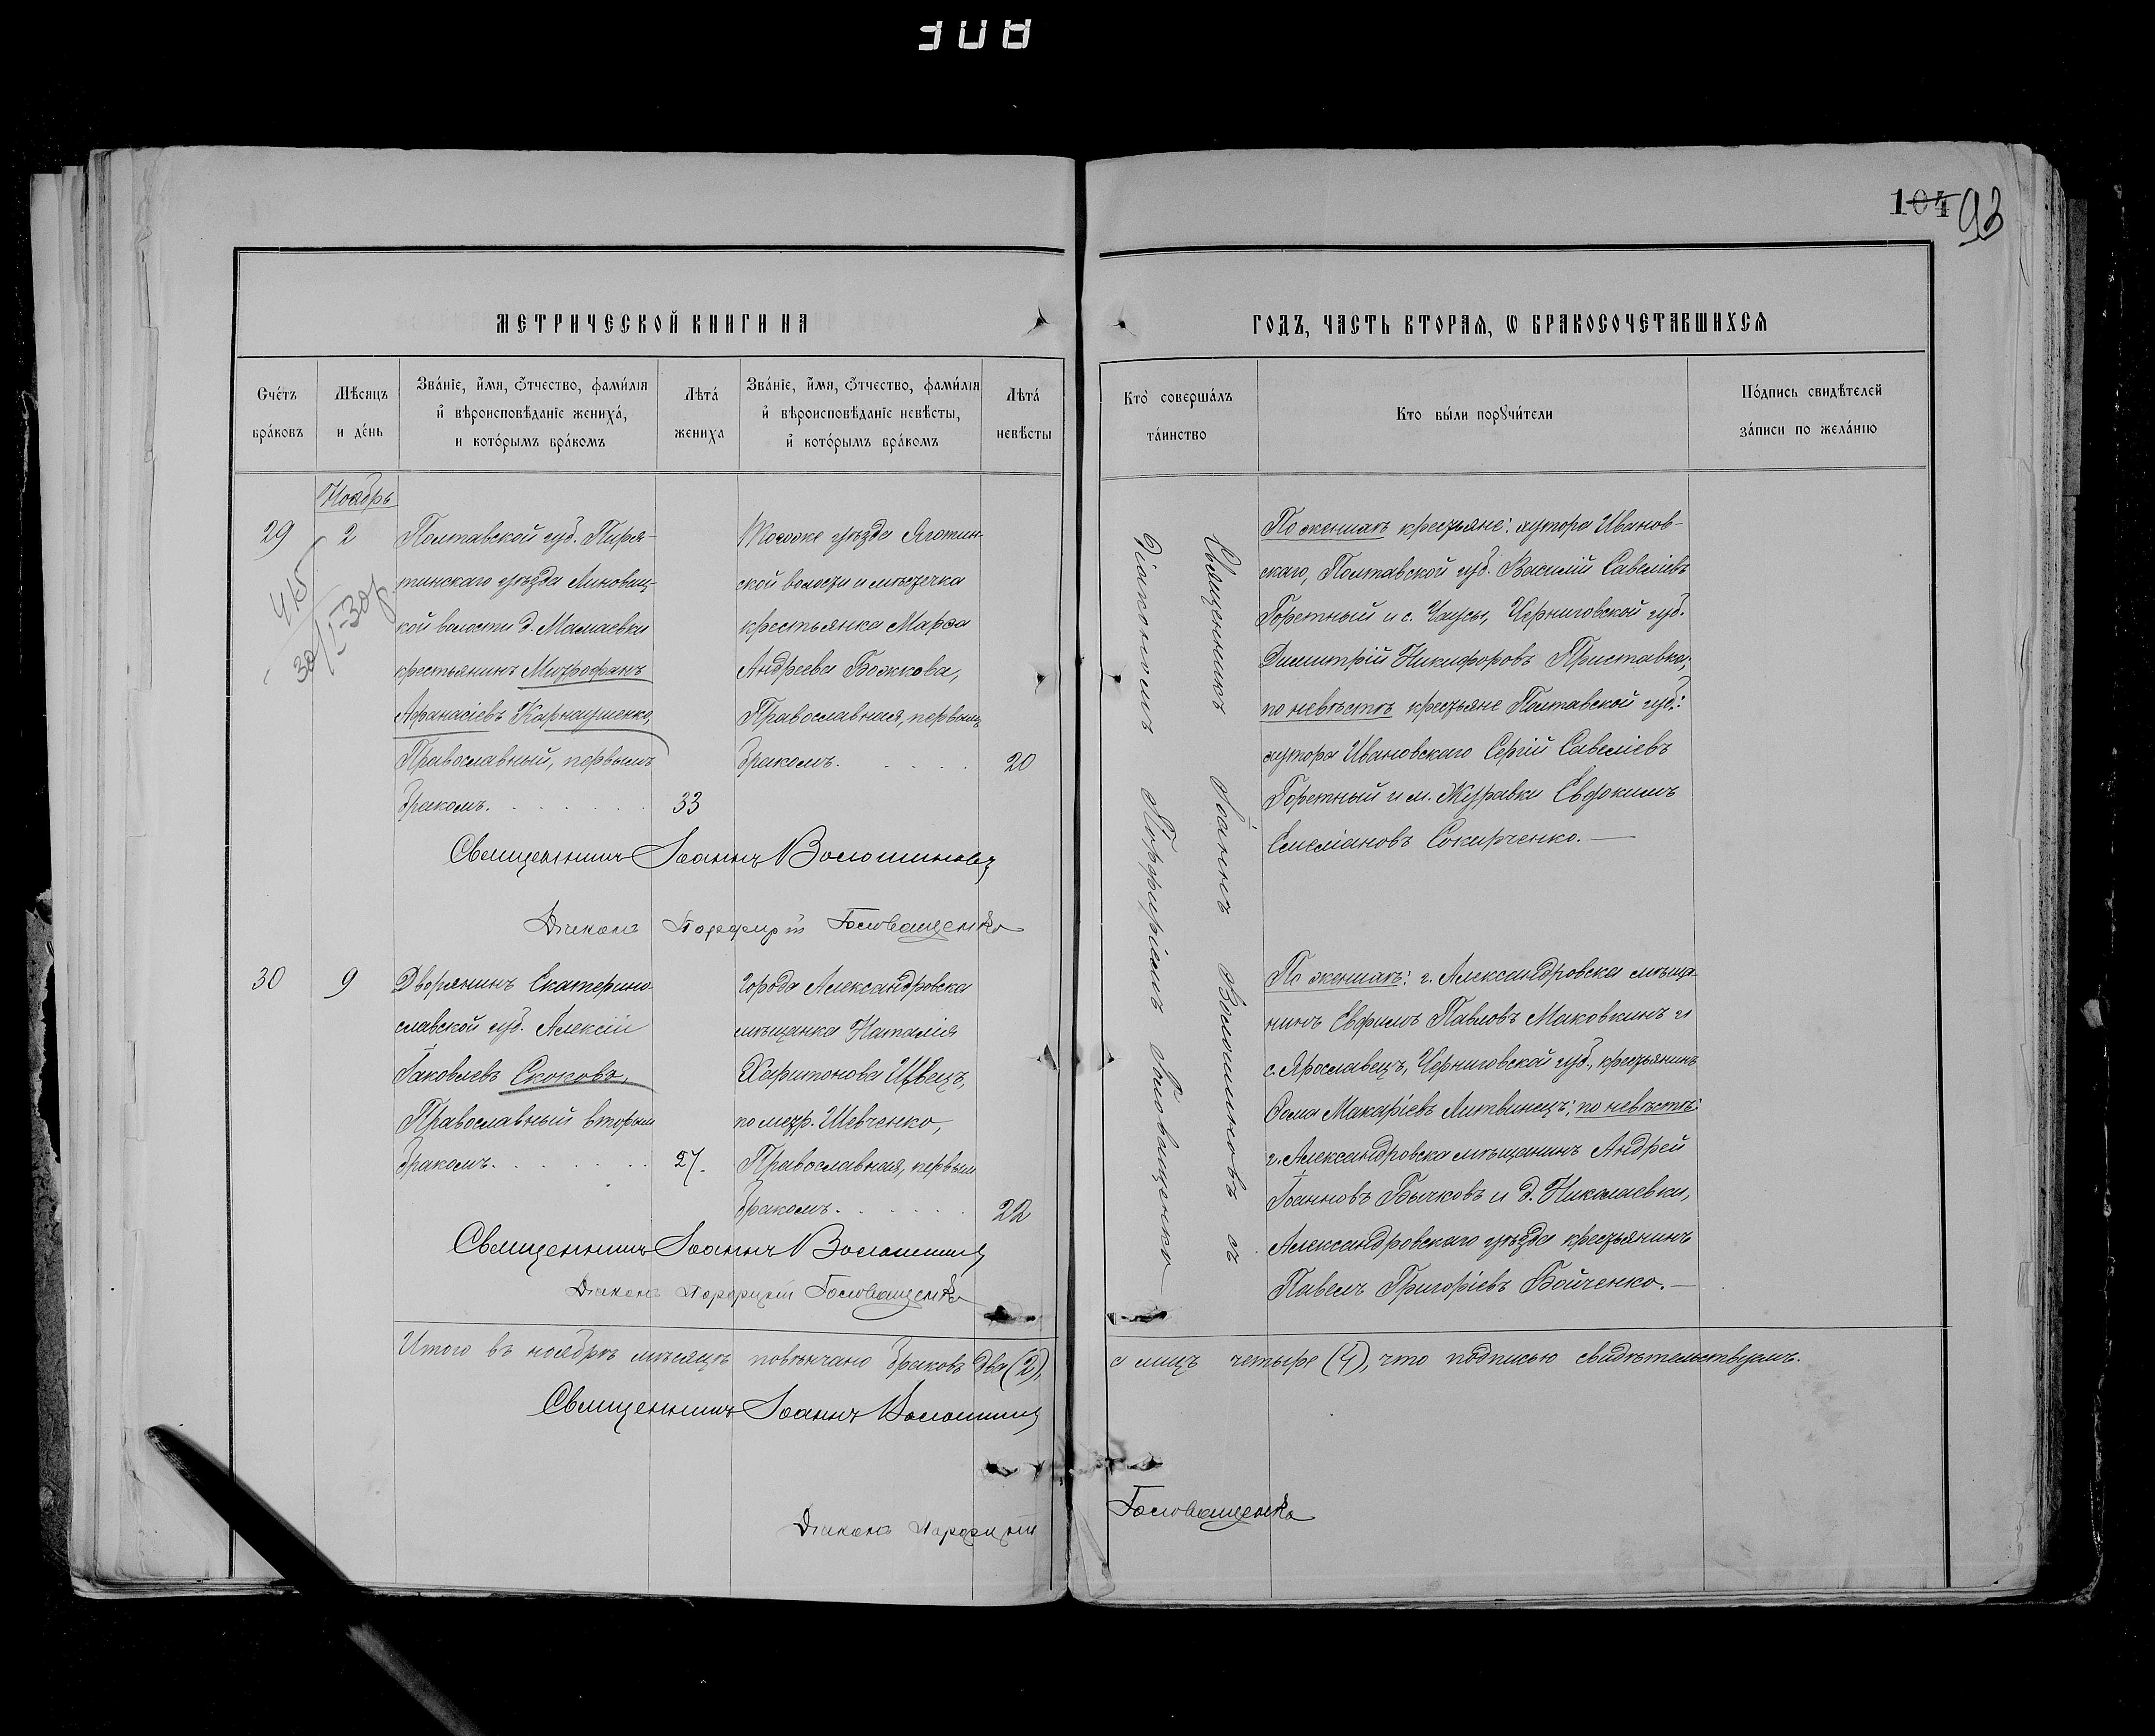 308
104 93
МЕТРИЧЕСКОЙ КНИГИ НА
ГОДЪ, ЧАСТЬ ВТОРАЯ, Ѡ БРАКОСОЧЕТАВШИХСЯ
Счетъ браковъ
Мѣсяцъ и день
Званіе, имя, отчество, фамилія
и вѣроисповѣданіе жениха,
и которымъ бракомъ
Лѣта жениха
Званіе, имя, отчество, фамилія
и вѣроисповѣданіе невѣсты,
и которымъ бракомъ
Лѣта невѣсты
Кто совершалъ таинство
Кто были поручители
Подпись свидѣтелей
записи по желанію
Ноябрь
29
2
415
30/I-30г
Полтавской губ. Пиря-
тинскаго уѣзда Линовиц-
кой волости д. Малаевки
крестьянинъ Митрофанъ
Афанасіевъ Карнаушенко,
Православный, первымъ
бракомъ.
33
Тогоже уѣзда Яготин-
ской волости и мѣстечка
крестьянка Марѳа
Андреева Божкова,
Православная, первымъ
бракомъ.
20
Священникъ Іоаннъ Волошиновъ
Діаконъ Порфирій Головащенко
30
9
Дворянинъ Екатерино-
славской губ. Алексій
Іаковлевъ Скоковъ,
Православный вторымъ
бракомъ.
27.
Города Александровска
мѣщанка Наталія
Харитонова Швецъ,
по метр. Шевченко,
Православная, первымъ
бракомъ.
22
Священникъ Іоаннъ Волошиновъ
Діаконъ Порфирій Головащенко
Священникъ Іоаннъ Волошиновъ съ
діакономъ Порфиріемъ Головащенко
По женихѣ крестьяне: хутора Иванов-
скаго, Полтавской губ. Василій Савеліевъ
Горетный и с. Чаусы, Черниговской губ.
Димитрій Никифоровъ Приставка;
по невѣстѣ крестьяне Полтавской губ.:
хутора Ивановскаго Сергій Савеліевъ
Горетный и м. Журавки Евдокимъ
Емеліановъ Сокирченко.—
По женихѣ: г. Александровска мѣща-
нинъ Ефимъ Павловъ Маковкинъ и
с. Ярославецъ, Черниговской губ., крестьянинъ
Ѳома Макаріевъ Литвинецъ; по невѣстѣ:
г. Александровска мѣщанинъ Андрей
Іоанновъ Бычковъ и д. Николаевки,
Александровскаго уѣзда крестьянинъ
Павелъ Григоріевъ Бойченко.—
Итого въ ноябрѣ мѣсяцѣ повѣнчано браковъ два (2), а лицъ четыре (4), что подписью свидѣтельствуемъ.
Священникъ Іоаннъ Волошиновъ
Діаконъ Порфирій Головащенко